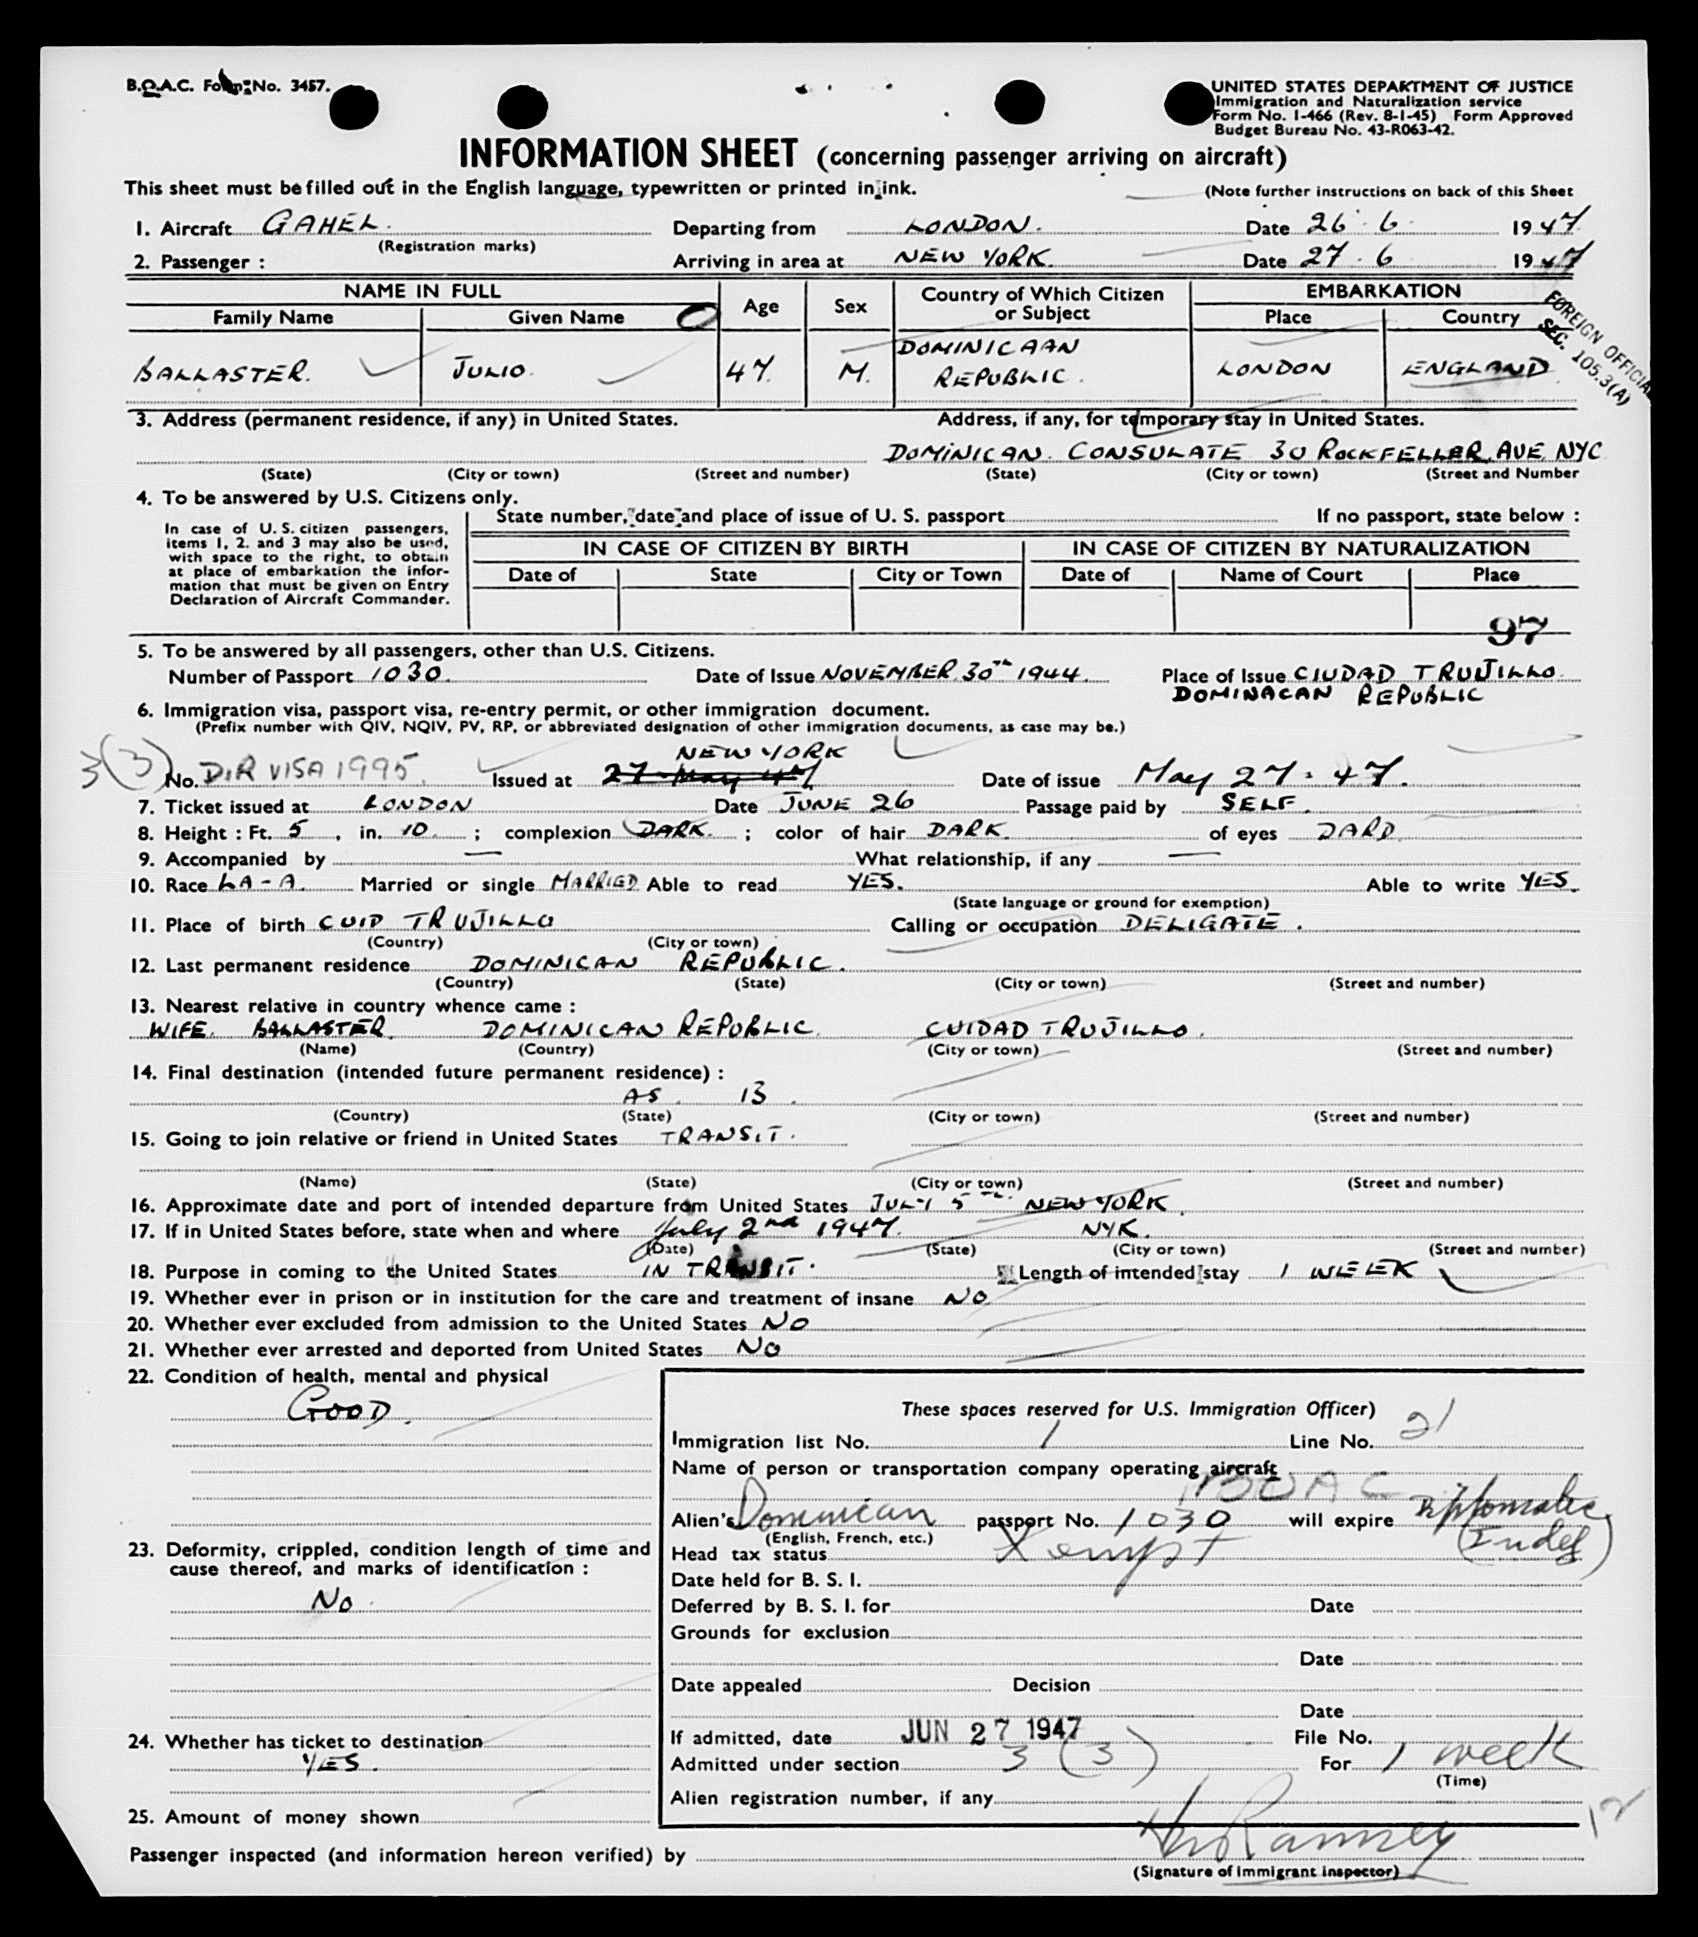 B.O.A.C. Form No. 3457.
UNITED STATES DEPARTMENT OF JUSTICE
Immigration and Naturalization service
Form No. I-466 (Rev. 8-1-45) Form Approved
Budget Bureau No. 43-R063-42.
INFORMATION SHEET (concerning passenger arriving on aircraft)
This sheet must be filled out in the English language, typewritten or printed in ink.
(Note further instructions on back of this Sheet
1. Aircraft GAHEL. Departing from LONDON. Date 26.6. 1947
(Registration marks)
2. Passenger : Arriving in area at NEW YORK. Date 27.6 1947
NAME IN FULL Age Sex Country of Which Citizen or Subject EMBARKATION
Family Name Given Name Place Country
FOREIGN OFFICIAL
SEC. 105.3(A)
BALLASTER. JULIO. 47. M. DOMINICAAN REPUBLIC. LONDON ENGLAND
3. Address (permanent residence, if any) in United States. Address, if any, for temporary stay in United States.
DOMINICAN. CONSULATE 30 ROCKFELLER AVE. NYC
(State) (City or town) (Street and number) (State) (City or town) (Street and Number
4. To be answered by U.S. Citizens only.
In case of U. S. citizen passengers,
items 1, 2. and 3 may also be used,
with space to the right, to obtain
at place of embarkation the infor-
mation that must be given on Entry
Declaration of Aircraft Commander.
State number, date and place of issue of U. S. passport If no passport, state below :
IN CASE OF CITIZEN BY BIRTH IN CASE OF CITIZEN BY NATURALIZATION
Date of State City or Town Date of Name of Court Place
97
5. To be answered by all passengers, other than U.S. Citizens.
Number of Passport 1030. Date of Issue NOVEMBER 30TH 1944. Place of Issue CIUDAD TRUJILLO.
DOMINACAN REPUBLIC
6. Immigration visa, passport visa, re-entry permit, or other immigration document.
(Prefix number with QIV, NQIV, PV, RP, or abbreviated designation of other immigration documents, as case may be.)
NEW YORK
3(3) No. DIR VISA 1995. Issued at 27 May 47 Date of issue May 27. 47.
7. Ticket issued at LONDON Date JUNE 26 Passage paid by SELF.
8. Height : Ft. 5 , in. 10. ; complexion DARK. ; color of hair DARK. of eyes DARD.
9. Accompanied by — What relationship, if any —
10. Race LA-A. Married or single MARRIED Able to read YES. Able to write YES.
(State language or ground for exemption)
11. Place of birth CUID TRUJILLO Calling or occupation DELIGATE.
(Country) (City or town)
12. Last permanent residence DOMINICAN REPUBLIC.
(Country) (State) (City or town) (Street and number)
13. Nearest relative in country whence came :
WIFE. BALLASTER. DOMINICAN REPUBLIC. CUIDAD TRUJILLO.
(Name) (Country) (City or town) (Street and number)
14. Final destination (intended future permanent residence) :
AS. 13.
(Country) (State) (City or town) (Street and number)
15. Going to join relative or friend in United States TRANSIT.
(Name) (State) (City or town) (Street and number)
16. Approximate date and port of intended departure from United States JULY 5TH. NEW YORK.
17. If in United States before, state when and where July 2nd 1947. NYK.
(Date) (State) (City or town) (Street and number)
18. Purpose in coming to the United States IN TRANSIT. Length of intended stay 1 WEEK
19. Whether ever in prison or in institution for the care and treatment of insane NO
20. Whether ever excluded from admission to the United States NO
21. Whether ever arrested and deported from United States NO
22. Condition of health, mental and physical
GOOD.
23. Deformity, crippled, condition length of time and
cause thereof, and marks of identification :
NO.
24. Whether has ticket to destination
YES.
25. Amount of money shown
These spaces reserved for U.S. Immigration Officer)
Immigration list No. 1 Line No. 21
Name of person or transportation company operating aircraft
BOAC
Alien's Dominican passport No. 1030 will expire Diplomatic
(Indef)
(English, French, etc.)
Head tax status Xempt
Date held for B. S. I.
Deferred by B. S. I. for Date
Grounds for exclusion
Date
Date appealed Decision
Date
If admitted, date JUN 27 1947 File No.
Admitted under section 3 (3) For 1 week
(Time)
Alien registration number, if any
12
Passenger inspected (and information hereon verified) by
(Signature of Immigrant Inspector)